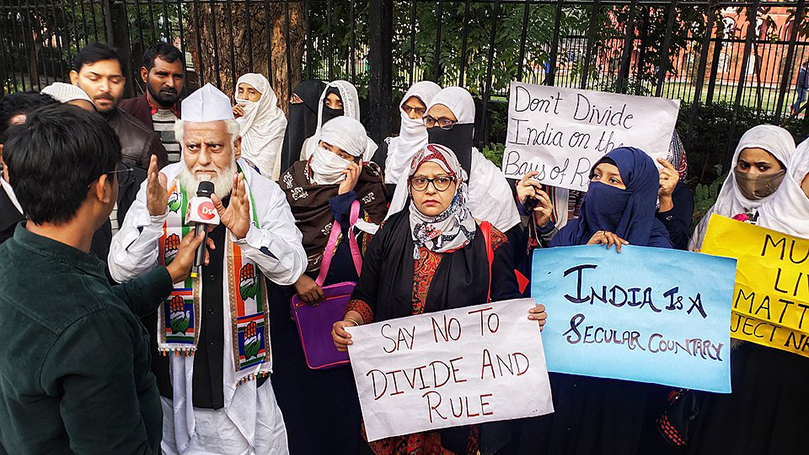 Don't Divide
India on the
Bays of R
SAY NO TO
DIVIDE AND
RULE
INDIA IS A
SECULAR COUNTARY
MU
LI
MATT
JECT